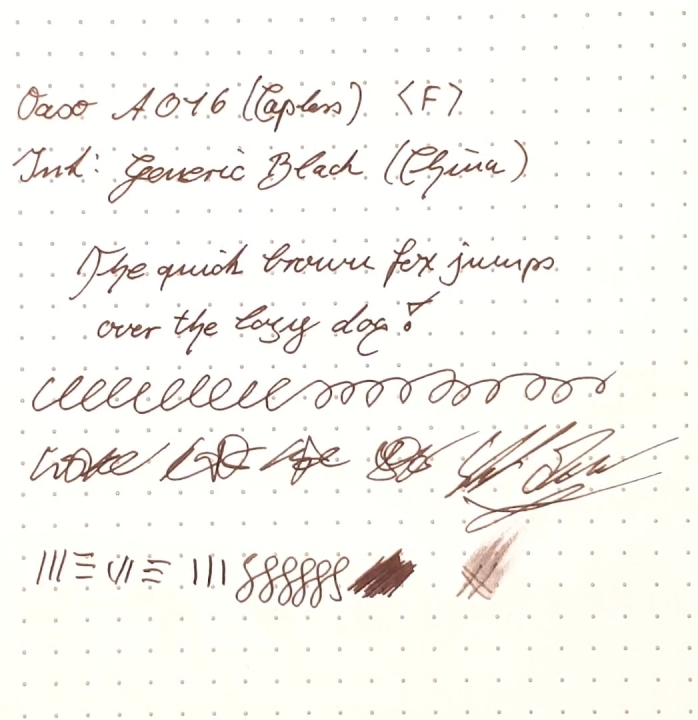 Oaso A016 (Capless) <F>
Ink: Generic Black (China)
The quick brown fox jumps
over the lazy dog!